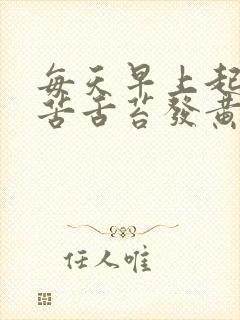 每天早上起
苦舌苔發黃
任人唯